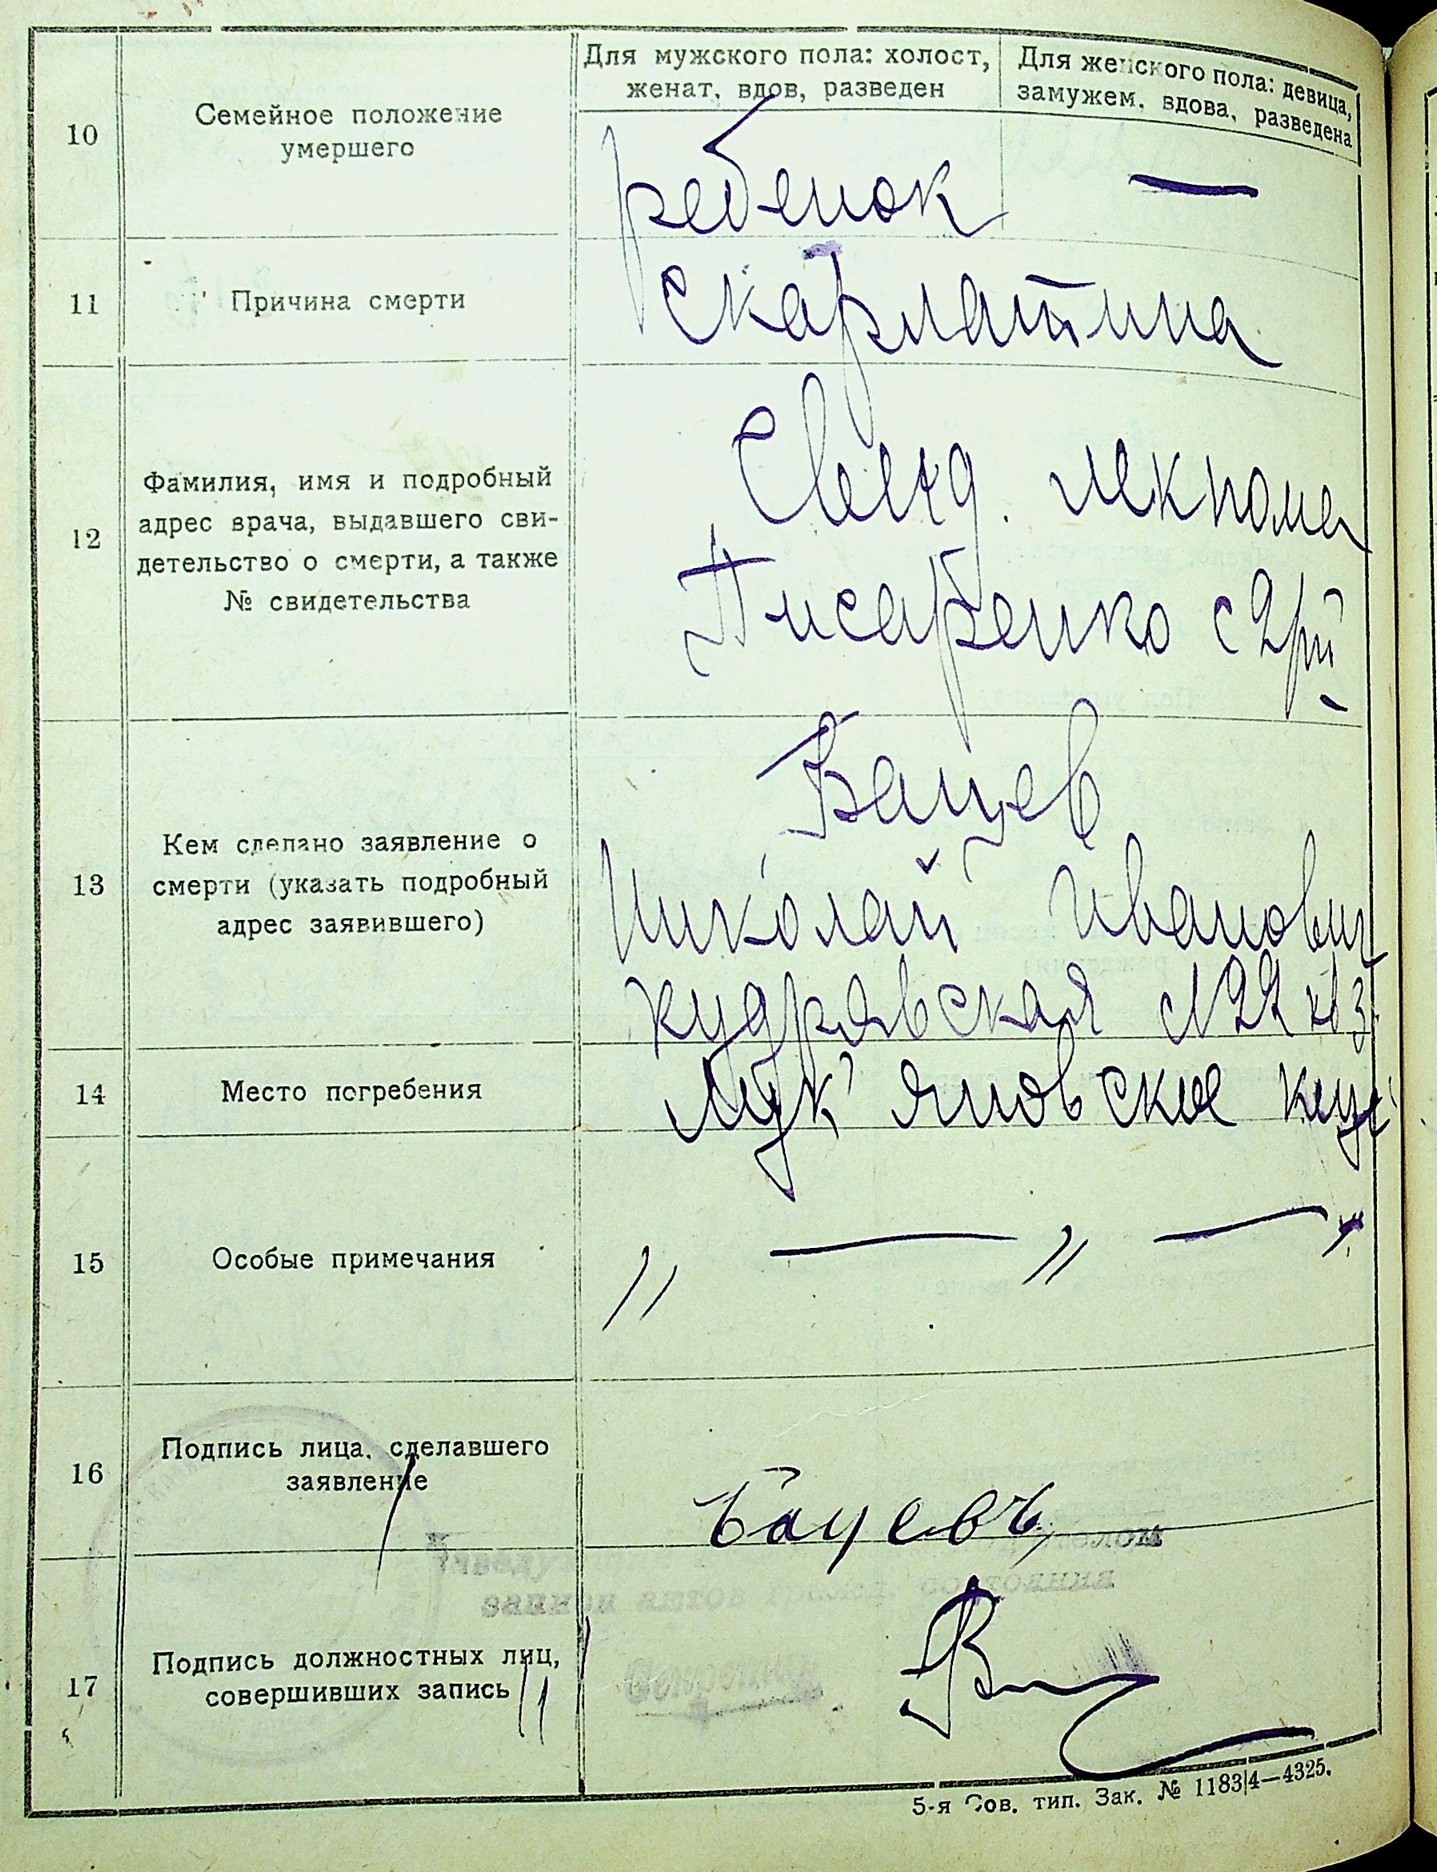 Для мужского пола: холост,
женат, вдов, разведен
Для женского пола: девица,
замужем, вдова, разведена
10
Семейное положение
умершего
ребенок
—
11
Причина смерти
скарлатина
12
Фамилия, имя и подробный
адрес врача, выдавшего сви-
детельство о смерти, а также
№ свидетельства
Свид. лекпома
Писаренко с
13
Кем сделано заявление о
смерти (указать подробный
адрес заявившего)
Бацев
Николай Иванович
Кудрявская № 22 кв 3
14
Место погребения
Лук'яновское
15
Особые примечания
„ — „ — „
16
Подпись лица, сделавшего
заявление
Бацевъ
Заведующий
записи актов гражд. состояния
17
Подпись должностных лиц,
совершивших запись
Секретарь
5-я Сов. тип. Зак. № 1183|4—4325.